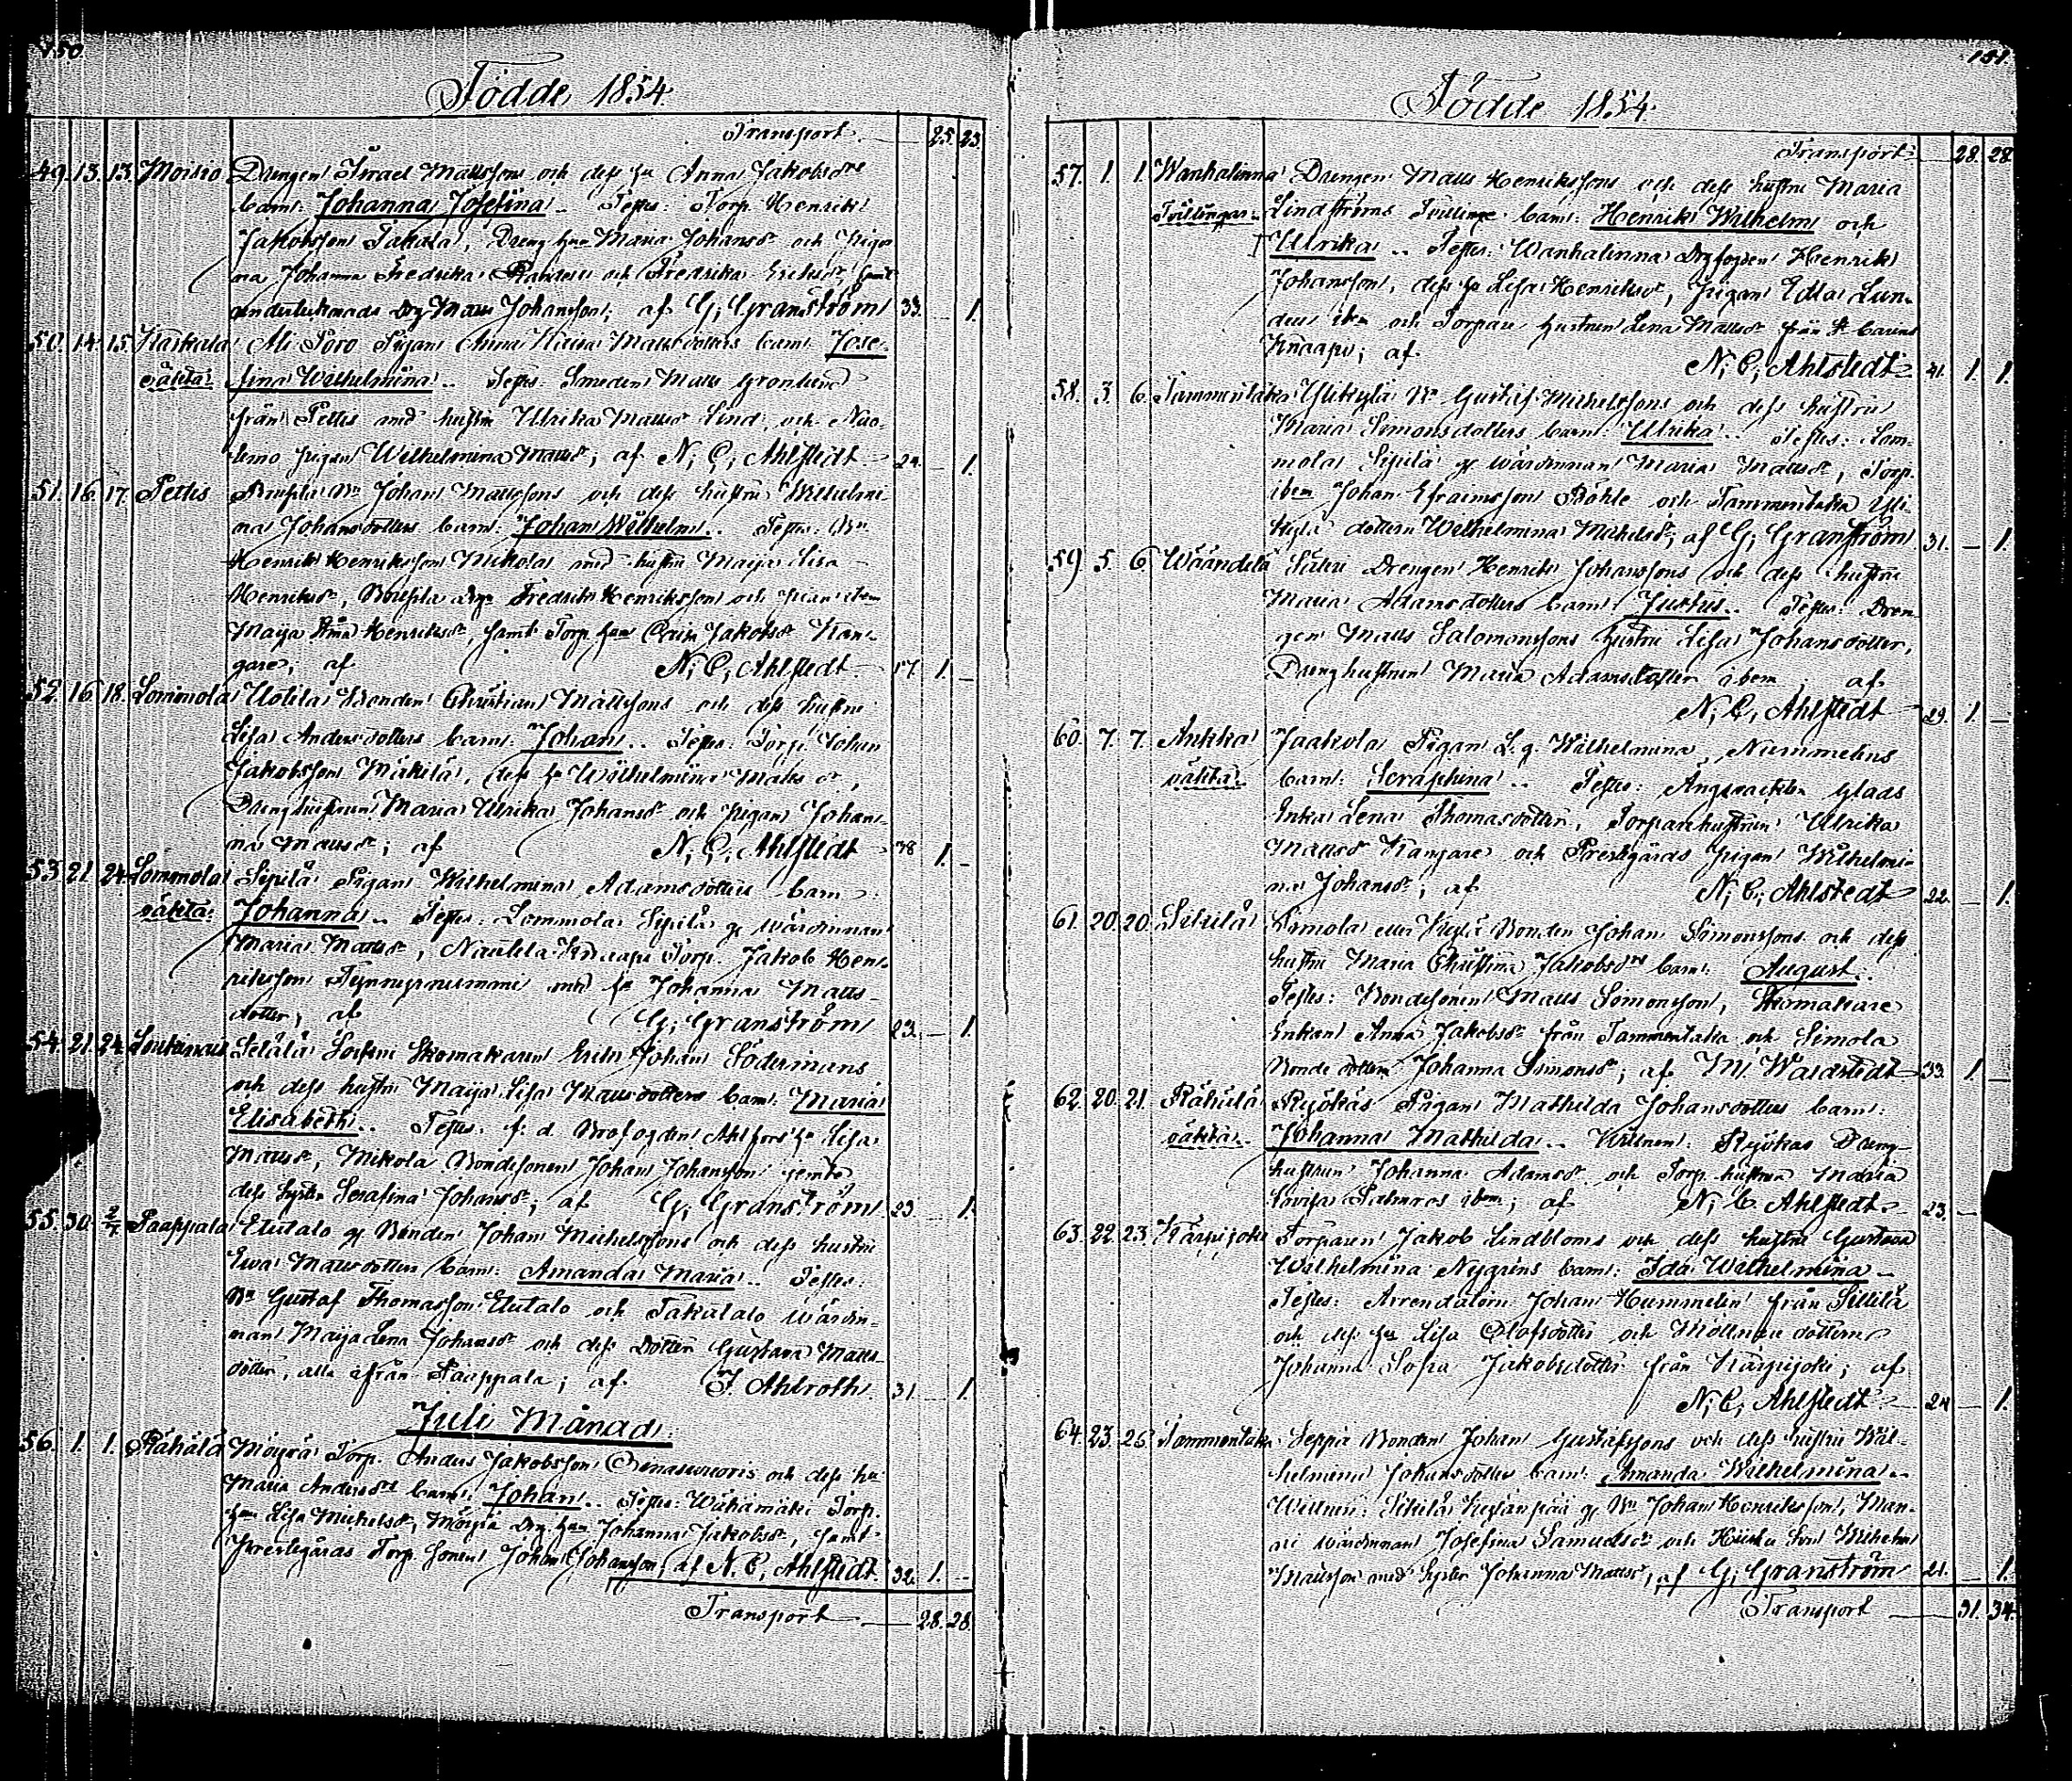 150
Födde 1854.
Transport 25. 23.
49. 13. 13. Moisio Drengen Israel Mattssons och dess hu Anna Jakobsdrs
barn: Johanna Josefina.. Testes: Torp. Henrik
Jakobsson Takala, Dreng hun Maria Johansdr och Pigor
na Johanna Fredrika och Fredrika Ericsdr samt
undertecknads Drg Matts Johansson; af G; Granström 33. — 1.
50. 14. 15. Karkala Ali Poro Pigan Anna Mattsdotters barn: Jose-
oäkta: fina Wilhelmina.. Testes: Smeden Matts Grönlund
från Pettis med hustru Ulrika Mattsdr Lind, och
pigan Wilhelmina Mattsdr; af N; C; Ahlstedt. 24. — 1.
51. 16. 17. Pettis Bn Johan Mattssons och dess hustru Wilhelmi-
na Johansdotters barn: Johan Wilhelm.. Testes: Bn
Henrik Henriksson Mikola med hustru Maija Lisa
Henriksdr, Drgn Fredrik Henriksson och
Maija Henriksdr, samt Torp. hun Jakobsdr Kan-
gare; af N; C; Ahlstedt 17. 1. —
52. 16. 18. Lommola Uotila Bonden Christian Mattssons och dess hustru
Lisa Andersdotters barn: Johan.. Testes: Torp. Johan
Jakobsson Mäkilä, dess hu Wilhelmina Mattsdr,
Dreng hustrun Maria Ulrika Johansdr och pigan Johan-
na Mattsdr; af N; C; Ahlstedt 38 1. —
53. 21. 24. Lommola Sipilä Pigan Wilhelmina Adamsdotters barn:
oäkta: Johanna.. Testes: Lommola Sipilä gl wärdinnan
Maria Mattsdr, Nautela Knaapi Torp. Jakob Hen-
riksson med hu Johanna Matts-
dotter; af G; Granström 23. — 1.
54. 21. 24. Loukinais Skomakaren Erik Johan Södermans
och dess hustru Maija Lisa Mattsdotters barn: Maria
Elisabeth.. Testes: f: d. Brofogden Ahlfors' hu Lisa
Mattsdr, Mikola Bondesonen Johan Johansson jemte
dess syster Serafina Johansdr; af G; Granström 23. — 1.
55. 30. 2/7. Paappala Etutalo gl Bonden Johan Michelssons och dess hustru
Ewa Mattsdotters barn: Amanda Maria.. Testes:
Bn Gustaf Thomasson Etutalo och Takatalo wärdin-
nan Maija Lena Johansdr och dess dotter Gustava Matts-
dotter, alla ifrån Paappala; af F. Ahlroth. 31. — 1.
Juli Månad:
56. 1. 1. Rähälä Möyrä Torp. Anders Jakobsson och dess hu
Maria Andersdrs barn: Johan.. Testes: Wähämäki Torp.
hun Lisa Michelsdr, Möyrä Drg hun Johanna Jakobsdr, samt
Prestegårds Torp. sonen Johan Johansson; af N. C; Ahlstedt. 32. 1. —
Transport 28. 28.
151.
Födde 1854.
Transport 28. 28.
57. 1. 1. Wanhalinna Drengen Matts Henrikssons och dess hustru Maria
Tvillingar. Lindströms Tvillinge barn: Henrik Wilhelm och
† Ulrika.. Testes: Wanhalinna Drgfogden Henrik
Johansson, dess hu Lisa Henriksdr, pigan Edla Lun-
dén ibm och Torpare hustrun Lena Mattsdr från
Knaapi; af N; C; Ahlstedt 41. 1. 1.
58. 3. 6. Tammentaka Ylikylä Bn Gustaf Michelssons och dess hustru
Maria Simonsdotters barn: Ulrika.. Testes: Lom-
mola Sipilä gl wärdinnan Maria Mattsdr, Torp.
ibm Johan Efraimsson Böhle och Tammentaka Yli-
kylä dottern Wilhelmina Michelsdr; af G; Granström 31. — 1.
59. 5. 6. Wäändilä Säteri Drengen Henrik Johanssons och dess hustru
Maria Adamsdotters barn: Justus.. Testes: Dren-
gen Matts Salomonssons hustru Lisa Johansdotter,
Dreng hustrun Maria Adamsdotter ibem; af
N; C; Ahlstedt 29. 1. —
60. 7. 7. Ankka Jaakola Pigan L. g. Wilhelmina Nummelins
oäkta. barn: Seraphina.. Testes: Glads
Enka Lena Thomasdotter, Torparehustrun Ulrika
Mattsdr Kangare och Prestegårds pigan Wilhelmi-
na Johansdr; af N; C; Ahlstedt 22. — 1.
61. 20. 20. Sikilä Simola eller Kylä Bonden Johan Simonssons och dess
hustru Maria Christina Jakobsdrs barn: August.
Testes: Bondesonen Matts Simonsson, Skomakare
Enkan Anna Jakobsdr från Tammentaka och Simola
Bonde dottern Johanna Simonsdr; af M; Waldstedt 33. 1. —
62. 20. 21. Rähälä Ryökäs Pigan Mathilda Johansdotters barn:
oäkta. Johanna Mathilda.. Wittnen: Ryökas Dreng-
hustrun Johanna Adamsdr och Torp. hustrun Maria
Lovisa Palmros ibm; af N; C. Ahlstedt. 23. —
63. 22. 23. Karpijoki Torparen Jakob Lindbloms och dess hustru Gustava
Wilhelmina Nygréns barn: Ida Wilhelmina..
Testes: Arrendatorn Johan Hummelin från Sillilä
och dess hu Lisa Olofsdotter och Möllnare dottern
Johanna Sofia Jakobsdotter från Karpijoki; af
N; C; Ahlstedt 24 — 1.
64. 23. 26. Tammentaka Seppä Bonden Johan Gustafssons och dess hustru Wil-
helmina Johansdotters barn: Amanda Wilhelmina..
Wittnen: Sikilä gl Bn Johan Henriksson, Man-
ni wärdinnan Josefina Samuelsdr och son Wilhelm
Mattsson med syster Johanna Mattsdr; af G; Granström 21. — 1.
Transport 31. 34.